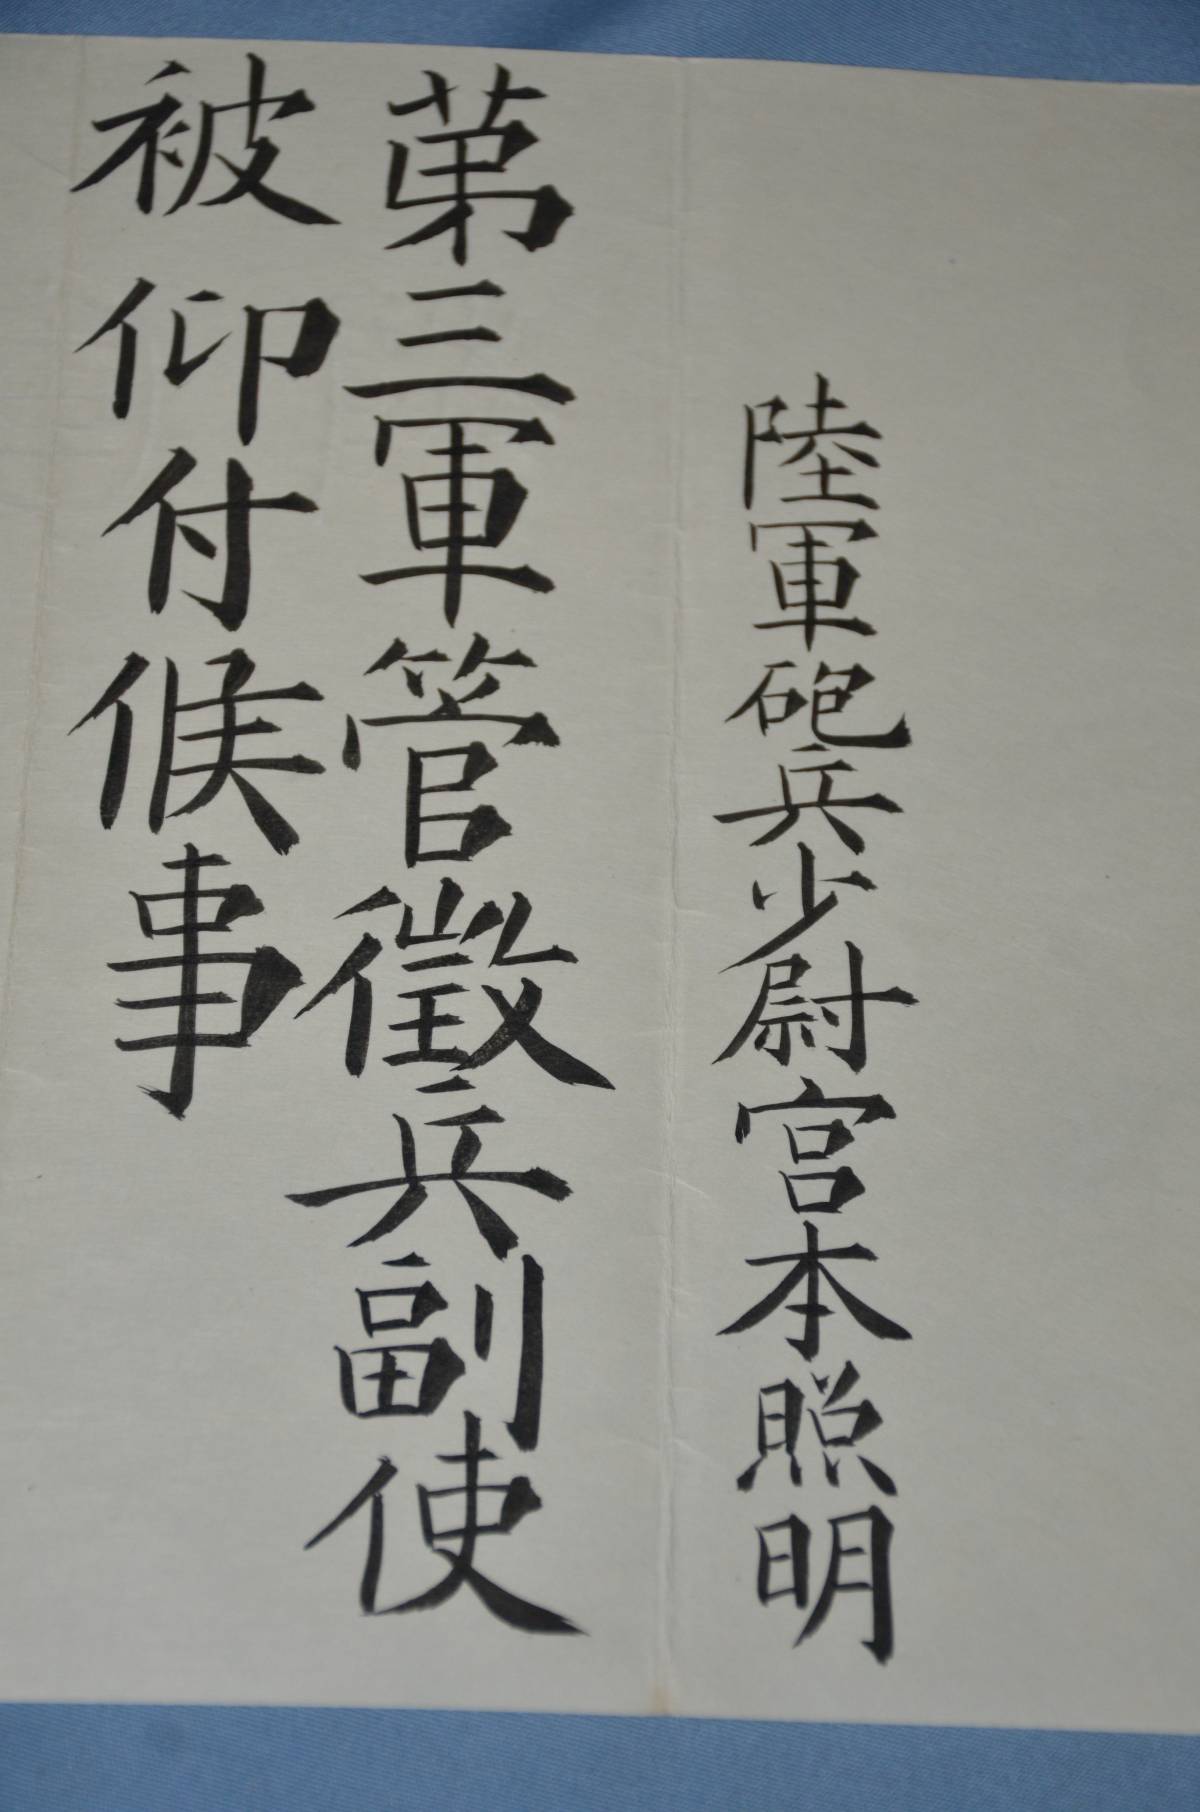 陸軍砲兵少尉宮本照明
第三軍管徴兵副使
被仰付候事